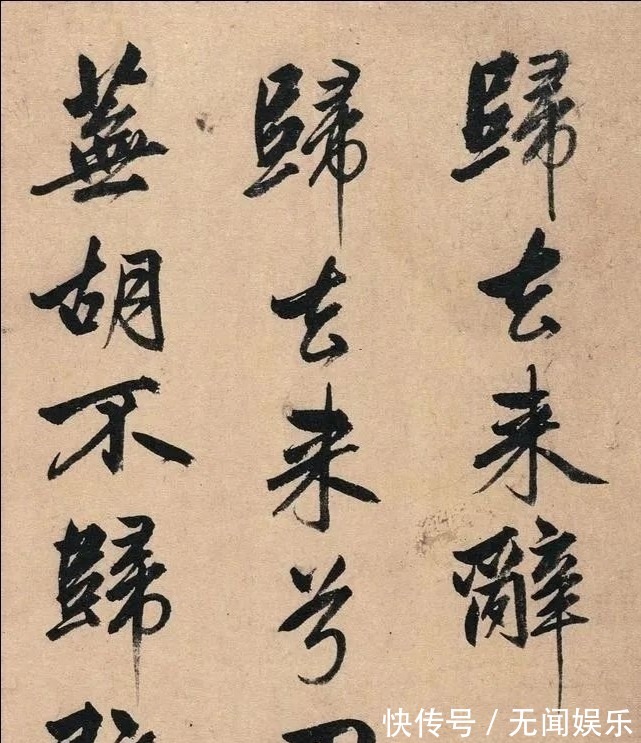 歸去来辭
歸去来兮
蕪胡不歸
快传号/无闻娱乐